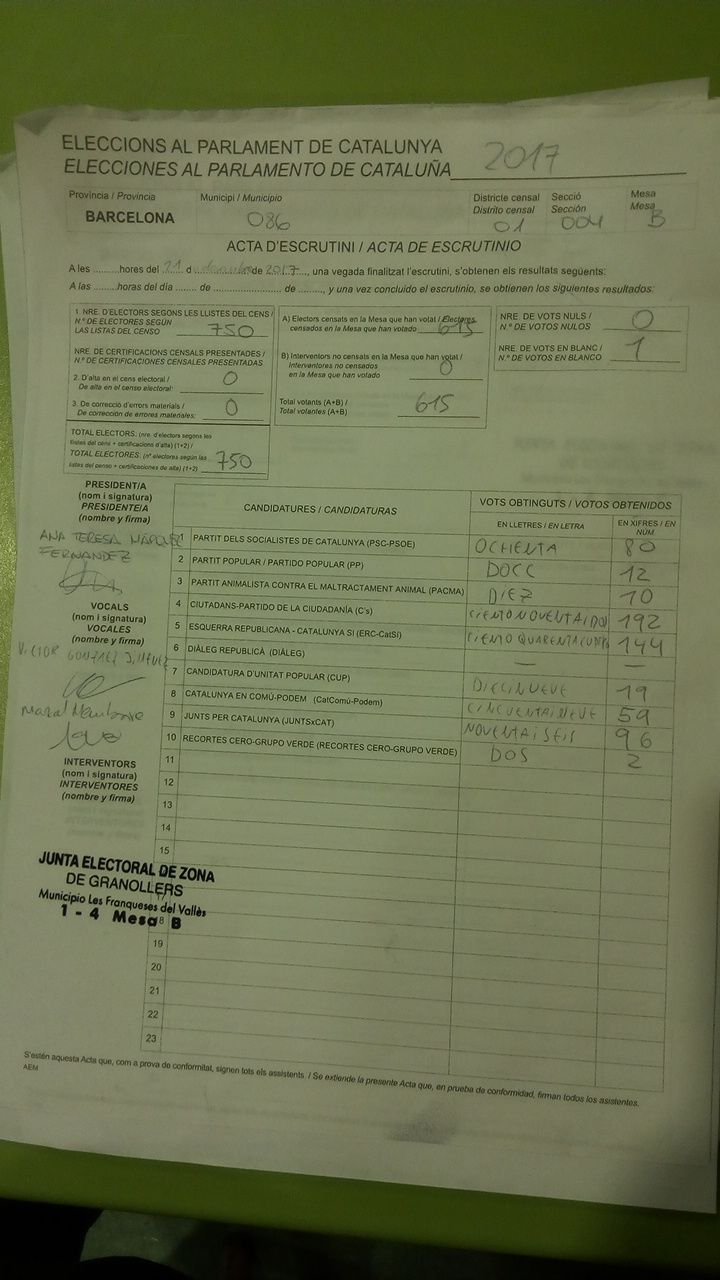 ELECCIONS AL PARLAMENT DE CATALUNYA
ELECCIONES AL PARLAMENTO DE CATALUÑA 2017
Província / Provincia Municipi / Municipio Districte censal Secció Mesa
Distrito censal Sección Mesa
BARCELONA 086 01 004 B
ACTA D'ESCRUTINI / ACTA DE ESCRUTINIO
A les ..........hores del 21 d de 2017..., una vegada finalitzat l'escrutini, s'obtenen els resultats següents:
A las ..........horas del día ........ de ........................ de ........, y una vez concluido el escrutinio, se obtienen los siguientes resultados:
1. NRE. D'ELECTORS SEGONS LES LLISTES DEL CENS /
N.º DE ELECTORES SEGÚN
LAS LISTAS DEL CENSO 750
NRE. DE CERTIFICACIONS CENSALS PRESENTADES /
N.º DE CERTIFICACIONES CENSALES PRESENTADAS
2. D'alta en el cens electoral /
De alta en el censo electoral: 0
3. De correcció d'errors materials /
De corrección de errores materiales: 0
TOTAL ELECTORS: (nre. d'electors segons les
llistes del cens + certificacions d'alta) (1+2) /
TOTAL ELECTORES: (nº electores según las
listas del censo + certificaciones de alta) (1+2) 750
A) Electors censats en la Mesa que han votat / Electores
censados en la Mesa que han votado 615
B) Interventors no censats en la Mesa que han votat /
Interventores no censados
en la Mesa que han votado 0
Total votants (A+B) /
Total votantes (A+B) 615
NRE. DE VOTS NULS /
N.º DE VOTOS NULOS 0
NRE. DE VOTS EN BLANC /
N.º DE VOTOS EN BLANCO 1
PRESIDENT/A
(nom i signatura)
PRESIDENTE/A
(nombre y firma)
ANA TERESA MÁRQUEZ
FERNANDEZ
VOCALS
(nom i signatura)
VOCALES
(nombre y firma)
VICTOR
INTERVENTORS
(nom i signatura)
INTERVENTORES
(nombre y firma)
CANDIDATURES / CANDIDATURAS VOTS OBTINGUTS / VOTOS OBTENIDOS
EN LLETRES / EN LETRA EN XIFRES / EN NÚM
1 PARTIT DELS SOCIALISTES DE CATALUNYA (PSC-PSOE) OCHENTA 80
2 PARTIT POPULAR / PARTIDO POPULAR (PP) DOCC 12
3 PARTIT ANIMALISTA CONTRA EL MALTRACTAMENT ANIMAL (PACMA) DIEZ 10
4 CIUTADANS-PARTIDO DE LA CIUDADANÍA (C's) CIENTO NOVENTAIDOS 192
5 ESQUERRA REPUBLICANA - CATALUNYA SI (ERC-CatSí) CIENTO QUARENTACUATRO 144
6 DIÀLEG REPUBLICÀ (DIÀLEG) — —
7 CANDIDATURA D'UNITAT POPULAR (CUP) DIECINUEVE 19
8 CATALUNYA EN COMÚ-PODEM (CatComú-Podem) CINCUENTAINUEVE 59
9 JUNTS PER CATALUNYA (JUNTSxCAT) NOVENTAISEIS 96
10 RECORTES CERO-GRUPO VERDE (RECORTES CERO-GRUPO VERDE) DOS 2
11
12
13
14
15
JUNTA ELECTORAL DE ZONA
DE GRANOLLERS
Municipio Les Franqueses del Vallès
1 - 4 Mesa B
19
20
21
22
23
S'estén aquesta Acta que, com a prova de conformitat, signen tots els assistents. / Se extiende la presente Acta que, en prueba de conformidad, firman todos los asistentes.
AEM